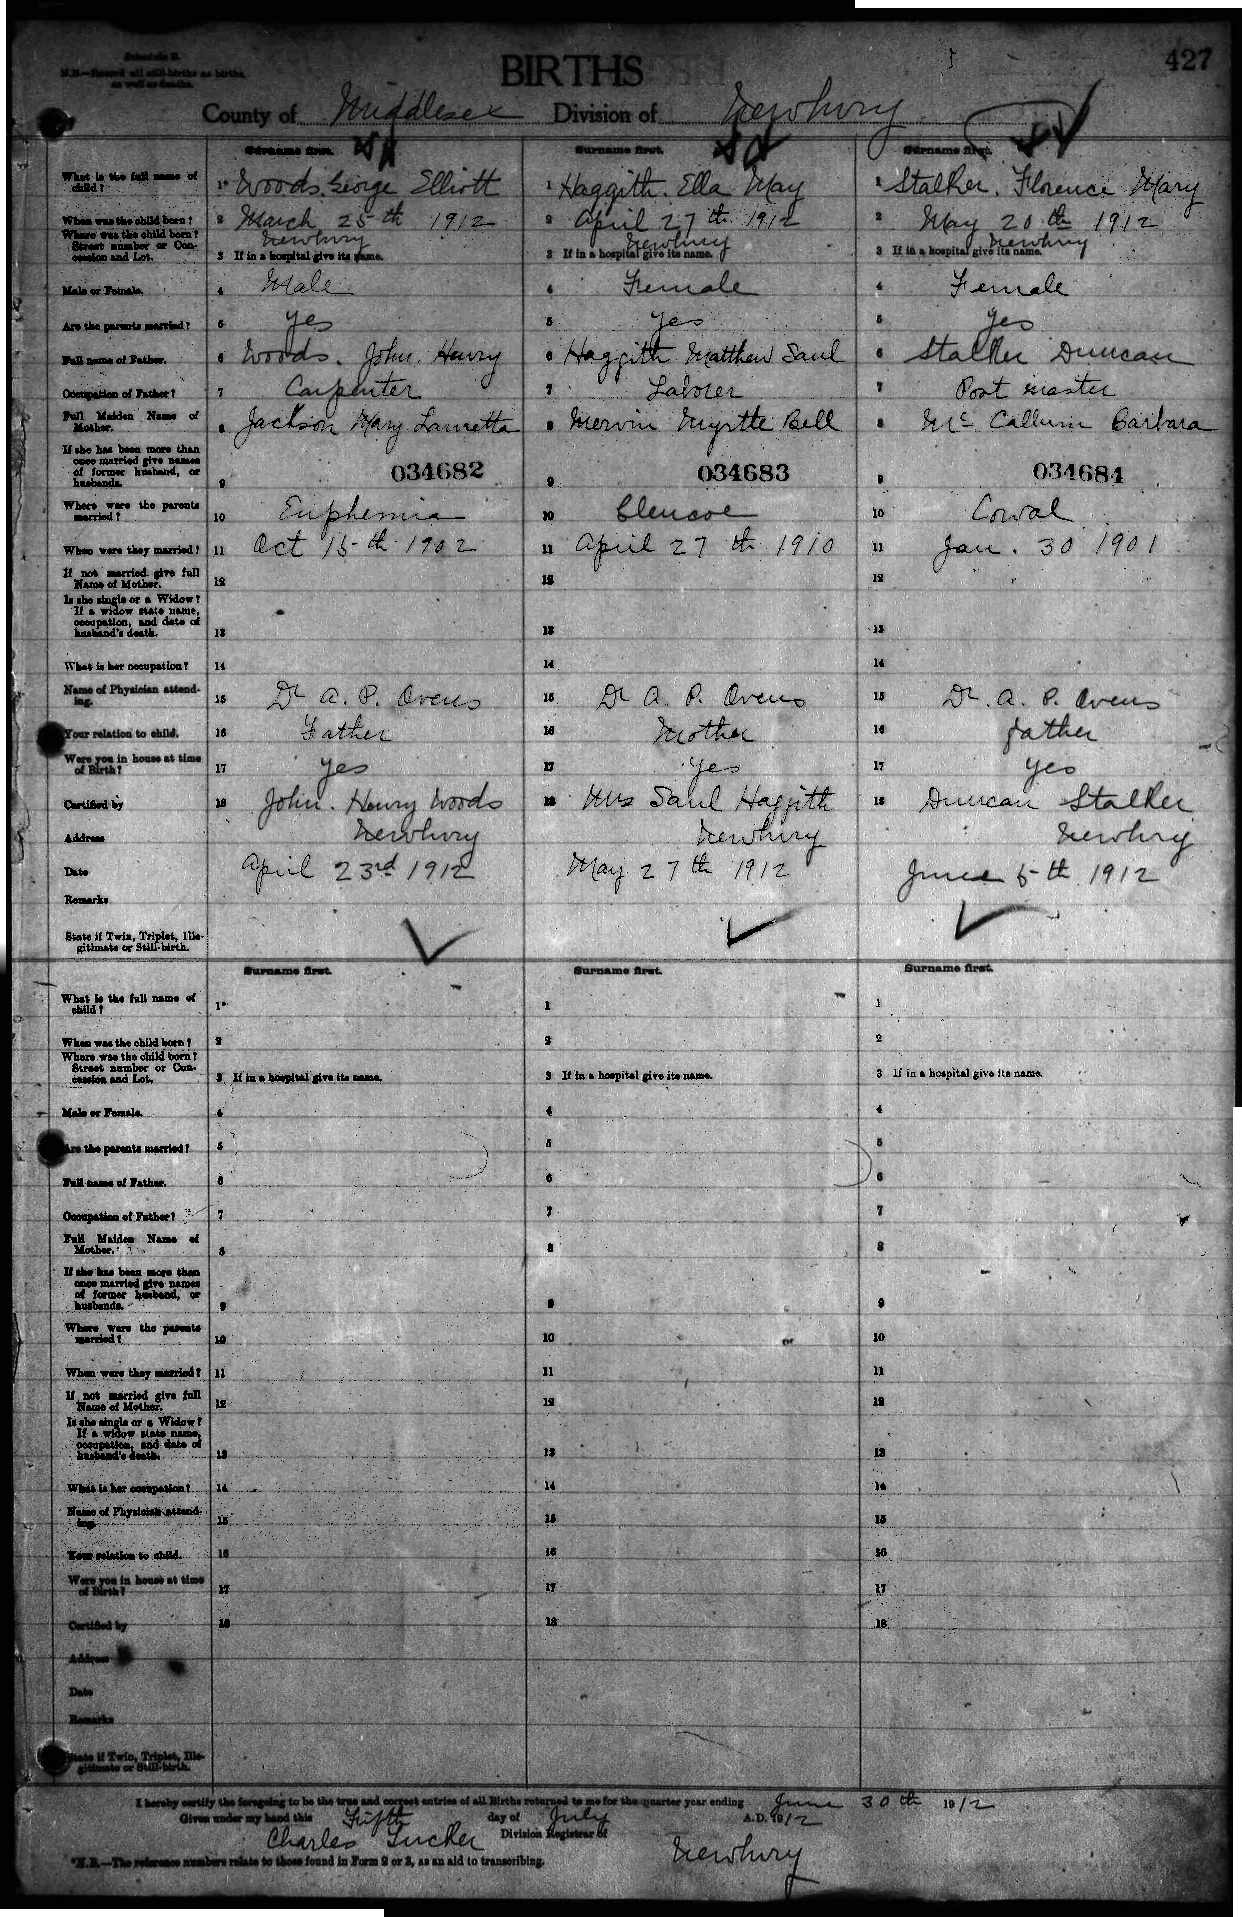 Schedule B.
N.B.—Record all still-births as births,
as well as deaths.
BIRTHS
427
County of Middlesex Division of Newbury
Surname first. Surname first. Surname first.
What is the full name of child? 1* Woods. George Elliott 1 Haggith. Ella May 1 Stalker. Florence Mary
When was the child born? 2 March 25th 1912 2 April 27th 1912 2 May 20th 1912
Where was the child born? Street number or Concession and Lot. 3 If in a hospital give its name. Newbury 3 If in a hospital give its name. Newbury 3 If in a hospital give its name. Newbury
Male or Female. 4 Male 4 Female 4 Female
Are the parents married? 5 yes 5 yes 5 yes
Full name of Father. 6 Woods. John. Henry 6 Haggith Matthew Saul 6 Stalker Duncan
Occupation of Father? 7 Carpenter 7 Laborer 7 Post master
Full Maiden Name of Mother. 8 Jackson Mary Lauretta 8 Merwin Myrtle Bell 8 Mc Callum Barbara
If she has been more than once married give names of former husband, or husbands. 9 034682 9 034683 9 034684
Where were the parents married? 10 Euphemia 10 Glencoe 10 Cowal
When were they married? 11 Oct 15th 1902 11 April 27th 1910 11 Jan. 30 1901
If not married give full Name of Mother. 12 12 12
Is she single or a Widow? If a widow state name, occupation, and date of husband's death. 13 13 13
What is her occupation? 14 14 14
Name of Physician attending. 15 Dr A. P. Ovens 15 Dr A. P. Ovens 15 Dr. A. P. Ovens
Your relation to child. 16 Father 16 Mother 16 father
Were you in house at time of Birth? 17 yes 17 yes 17 yes
Certified by 18 John. Henry Woods 18 Mrs Saul Haggith 18 Duncan Stalker
Address Newbury Newbury Newbury
Date April 23rd 1912 May 27th 1912 June 5th 1912
Remarks
State if Twin, Triplet, Illegitimate or Still-birth.
Surname first. Surname first. Surname first.
What is the full name of child? 1* 1 1
When was the child born? 2 2 2
Where was the child born? Street number or Concession and Lot. 3 If in a hospital give its name. 3 If in a hospital give its name. 3 If in a hospital give its name.
Male or Female. 4 4 4
Are the parents married? 5 5 5
Full name of Father. 6 6 6
Occupation of Father? 7 7 7
Full Maiden Name of Mother. 8 8 8
If she has been more than once married give names of former husband, or husbands. 9 9 9
Where were the parents married? 10 10 10
When were they married? 11 11 11
If not married give full Name of Mother. 12 12 12
Is she single or a Widow? If a widow state name, occupation, and date of husband's death. 13 13 13
What is her occupation? 14 14 14
Name of Physician attending. 15 15 15
Your relation to child. 16 16 16
Were you in house at time of Birth? 17 17 17
Certified by 18 18 18
Address
Date
Remarks
State if Twin, Triplet, Illegitimate or Still-birth.
I hereby certify the foregoing to be the true and correct entries of all Births returned to me for the quarter year ending June 30th 1912
Given under my hand this Fifth day of July A.D. 1912
Charles Tucker Division Registrar of Newbury
*N.B.—The reference numbers relate to those found in Form 2 or 3, as an aid to transcribing.